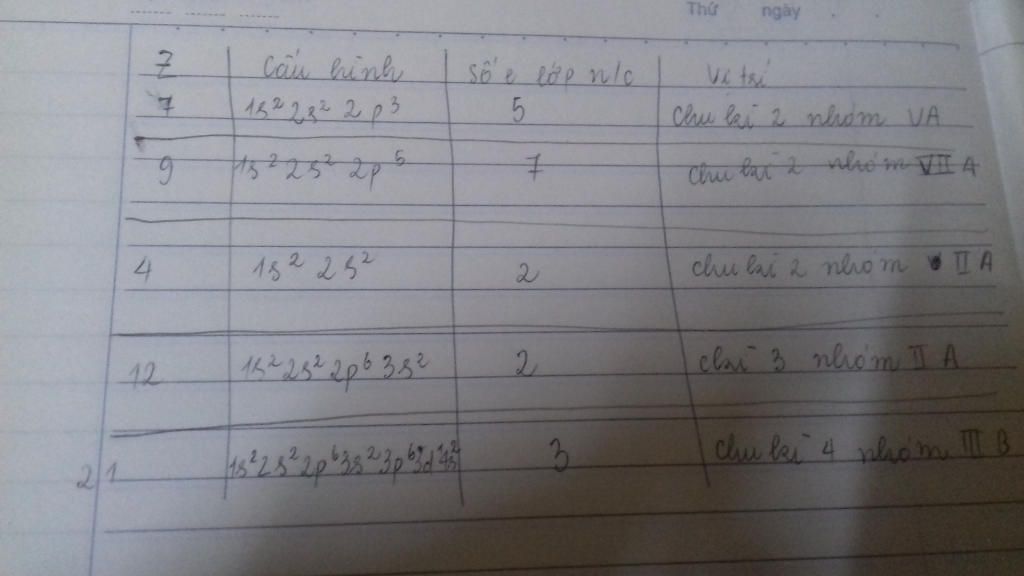 Thứ ngày
Z Cấu hình Số e lớp n/c Vị trí
7 1s² 2s² 2p³ 5 Chu kì 2 nhóm VA
9 1s² 2s² 2p⁵ 7 Chu kì 2 nhóm VII A
4 1s² 2s² 2 Chu kì 2 nhóm II A
12 1s² 2s² 2p⁶ 3s² 2 Ckì 3 nhóm II A
21 1s² 2s² 2p⁶ 3s² 3p⁶ 3d¹ 4s² 3 Chu kì 4 nhóm III B